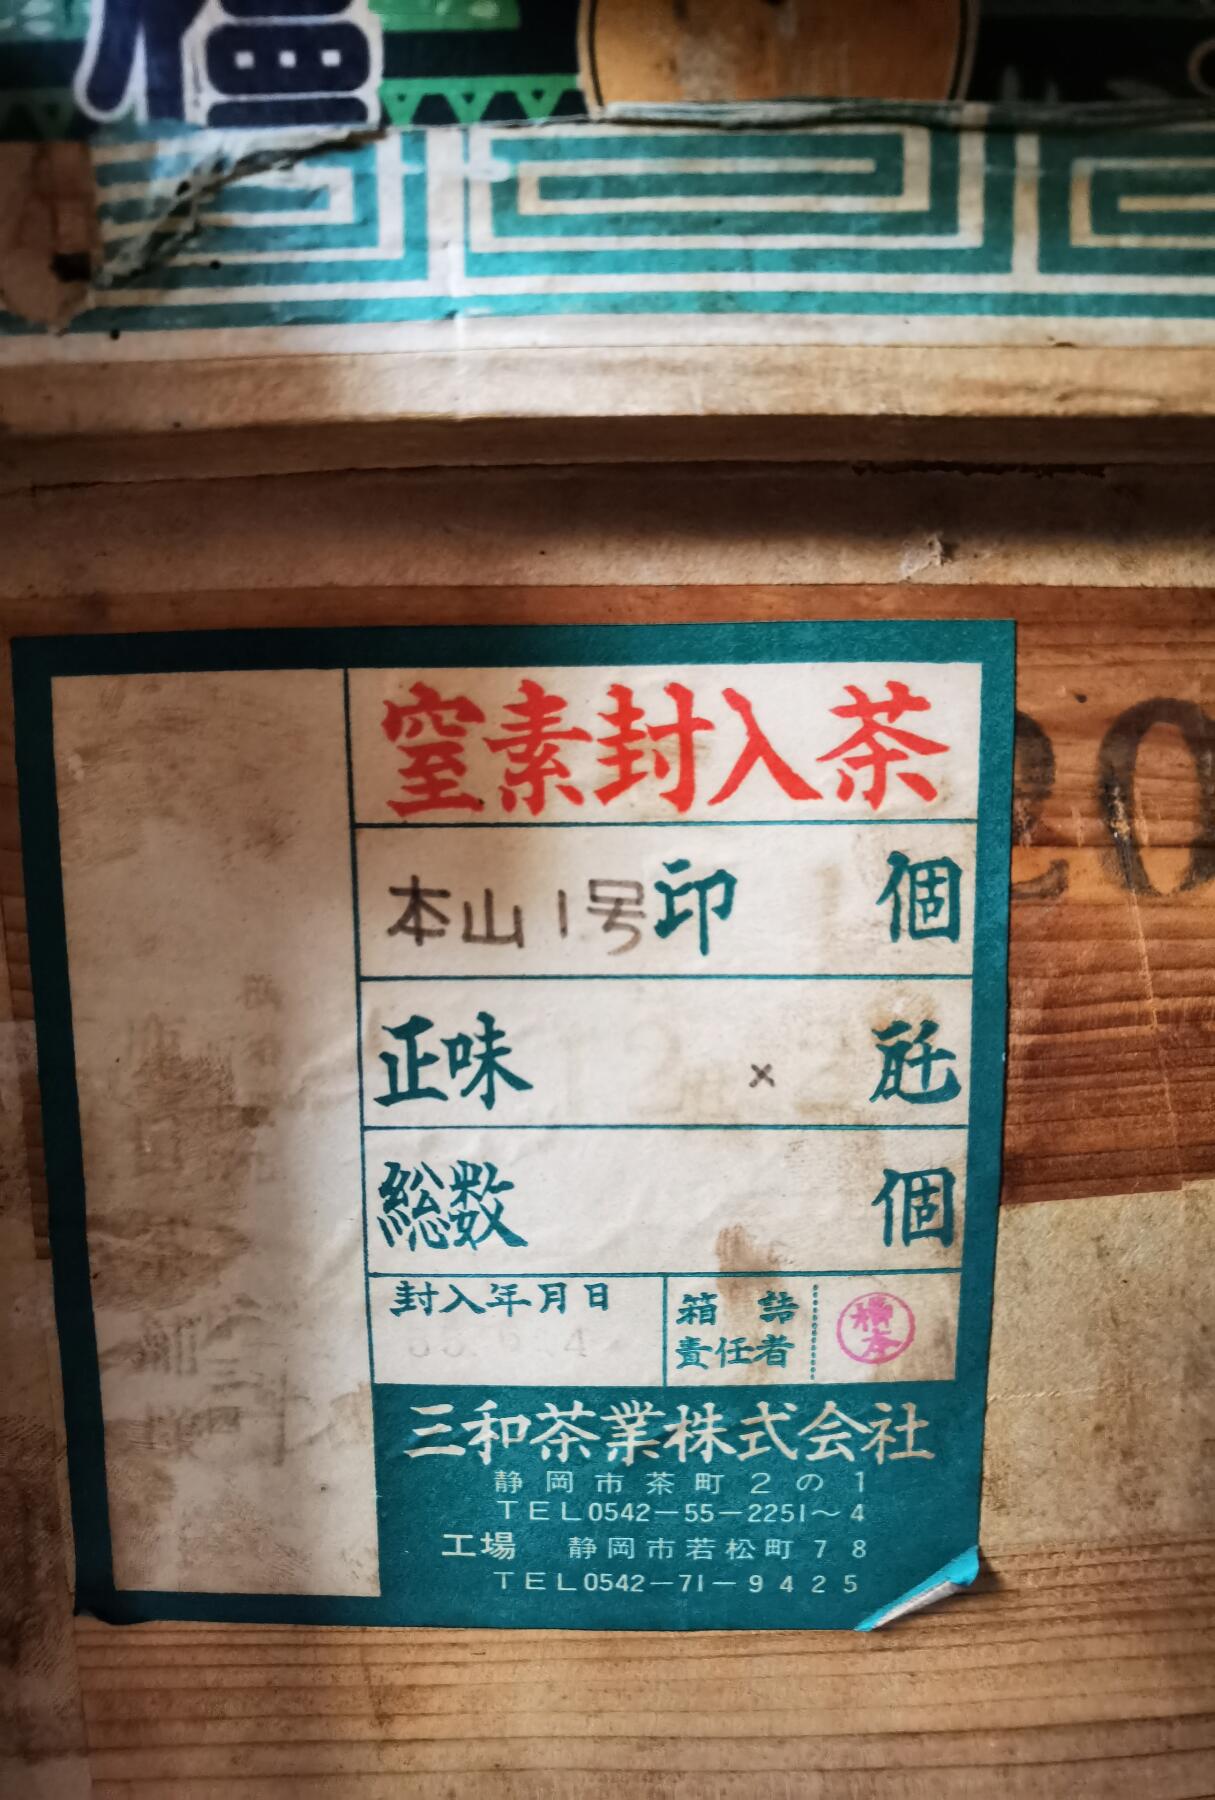 窒素封入茶
本山1号印 個
正味 × 瓩
総数 個
封入年月日
箱詰
責任者
三和茶業株式会社
静岡市茶町2の1
TEL0542-55-2251~4
工場 静岡市若松町78
TEL0542-71-9425
20